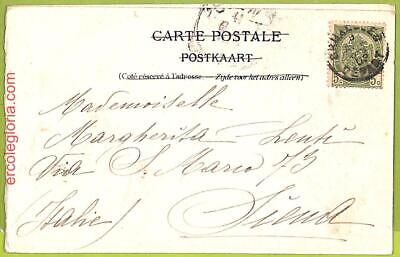 CARTE POSTALE
POSTKAART
(Coté réservé à l'adresse. — Zijde voor het adres alleen)
Mademoiselle
Margherita Lenti
Via S. Marco 73
(Italie) Siena
ercolegloria.com